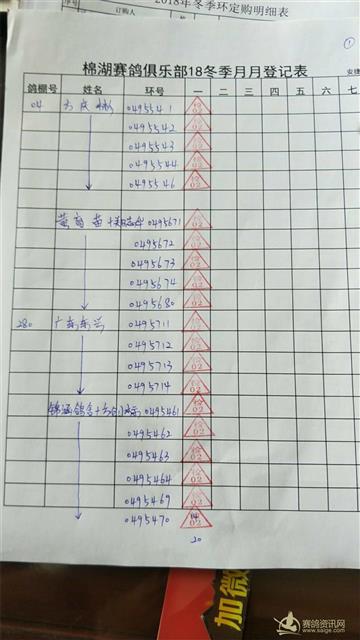 2018年冬季环定购明细表
订购人
①
棉湖赛鸽俱乐部18冬季月月登记表
安捷
鸽棚号 姓名 环号 一 二 三 四 五 六 七
04 0495541 02
0495542 02
0495543 02
0495544 02
0495546 02
0495671 02
0495672 02
0495673 02
0495674 02
0495680 02
280 广东东兴 0495711 02
0495712 02
0495713 02
0495714 02
锦涵鸽舍+ 0495461 02
0495462 02
0495463 02
0495464 02
0495469 02
0495470 02
20
加微
赛鸽资讯网
www.saige.com